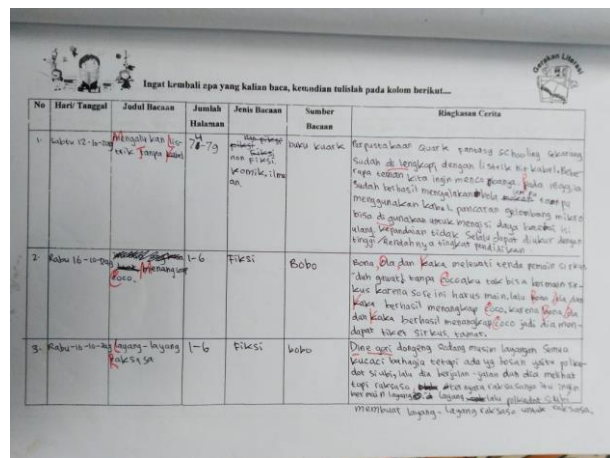 Gerakan Literasi
Ingat kembali apa yang kalian baca, kemudian tulislah pada kolom berikut....
No Hari/ Tanggal Judul Bacaan Jumlah Halaman Jenis Bacaan Sumber Bacaan Ringkasan Cerita
1. Sabtu 12-10-2019
Mengalirkan Lis-
trik Tanpa Kabel
74-79
non fiksi
komik, ilmi
an.
buku kuark
Perpustakaan Quark Fantasy Schooling sekarang
sudah di lengkapi dengan listrik nirkabel. Bebe
rapa teman kita ingin mencobanya. Pada
sudah berhasil menyalakan bola lampu tanpa
menggunakan kabel, pancaran gelombang mikro
bisa di gunakan untuk mengisi daya baterai isi
ulang. Kepandaian tidak selalu dapat diukur dengan
tinggi Rendahnya tingkat pendidikan
2. Rabu 16-10-2019
Menangkap
Coco.
1-6
Fiksi
Bobo
Bona, Ola dan Kaka melewati tenda pemain sirkus
"duh gawat! tanpa Cocoaku tak bisa bermain sir
kus karena sore ini harus main, lalu Bona Ola dan
Kaka berhasil menangkap Coco, karena Bona, Ola
dan Kaka berhasil menangkap Coco jadi dia men-
dapat tiket sirkus, tamat.
3. Rabu-16-10-2019
Layang-layang
Raksasa
1-6
Fiksi
bobo
Dine geri dongeng sedang musim layangan Semua
kurcaci bahagia tetapi ada yg bosan yaitu polka-
dot si ubi, lalu dia berjalan-jalan dan dia melihat
topi raksasa, ternyata raksasanya itu ingin
bermain layang layang lalu polkadot si ubi
membuat layang-layang raksasa untuk raksasa.